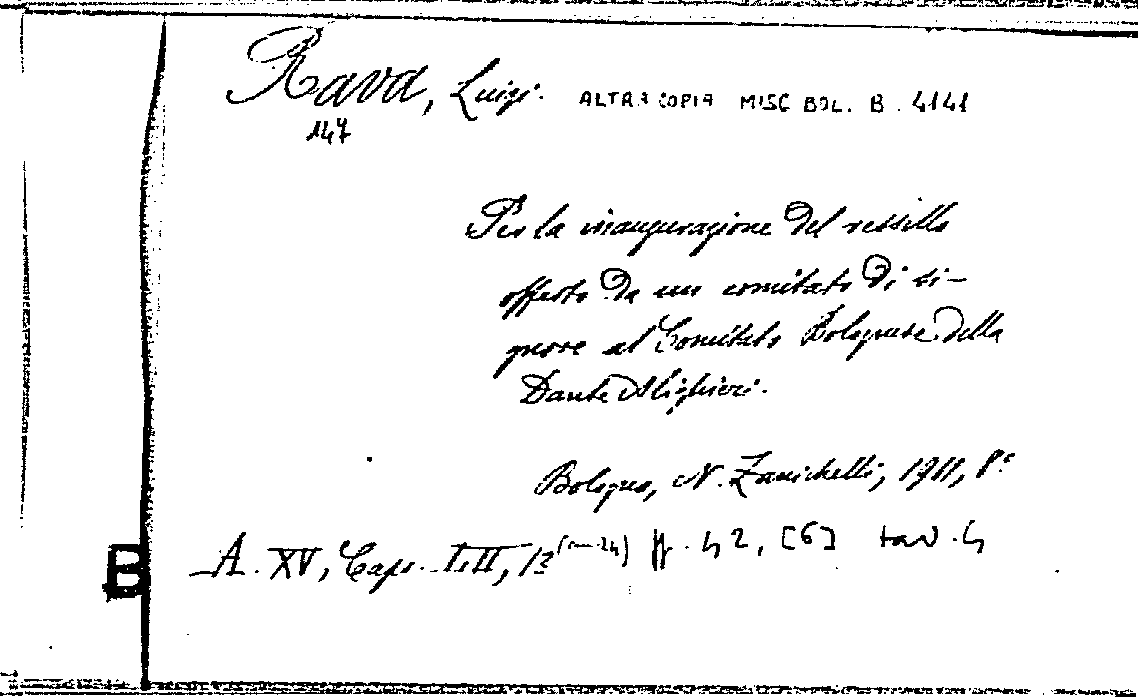 Rava, Luigi. ALTRA COPIA MISC BOL. B. 4141
147
Per la inaugurazione del vessillo
offerto da un comitato di si-
gnore al Comitato Bolognese della
Dante Alighieri.
Bologna, N. Zanichelli, 1911, 8°
B A. XV, Caps. Lett, 13 (n. 24) pp. 42, [6] tav. 4